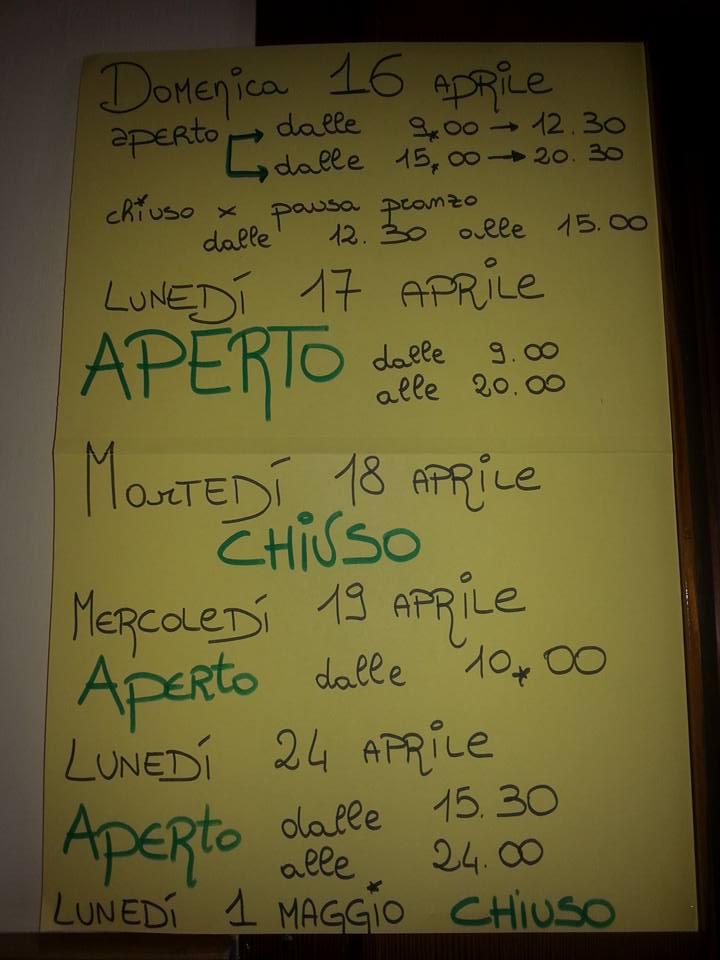 Domenica 16 APRILE
aperto → dalle 9.00 → 12.30
→ dalle 15,00 → 20.30
chiuso x pausa pranzo
dalle 12.30 alle 15.00
LUNEDÍ 17 APRILE
APERTO dalle 9.00
alle 20.00
MarTEDÍ 18 APRILE
CHIUSO
MERCOLEDÍ 19 APRILE
APERTO dalle 10.00
LUNEDÍ 24 APRILE
APERTO dalle 15.30
alle 24.00
LUNEDÍ 1 MAGGIO CHIUSO